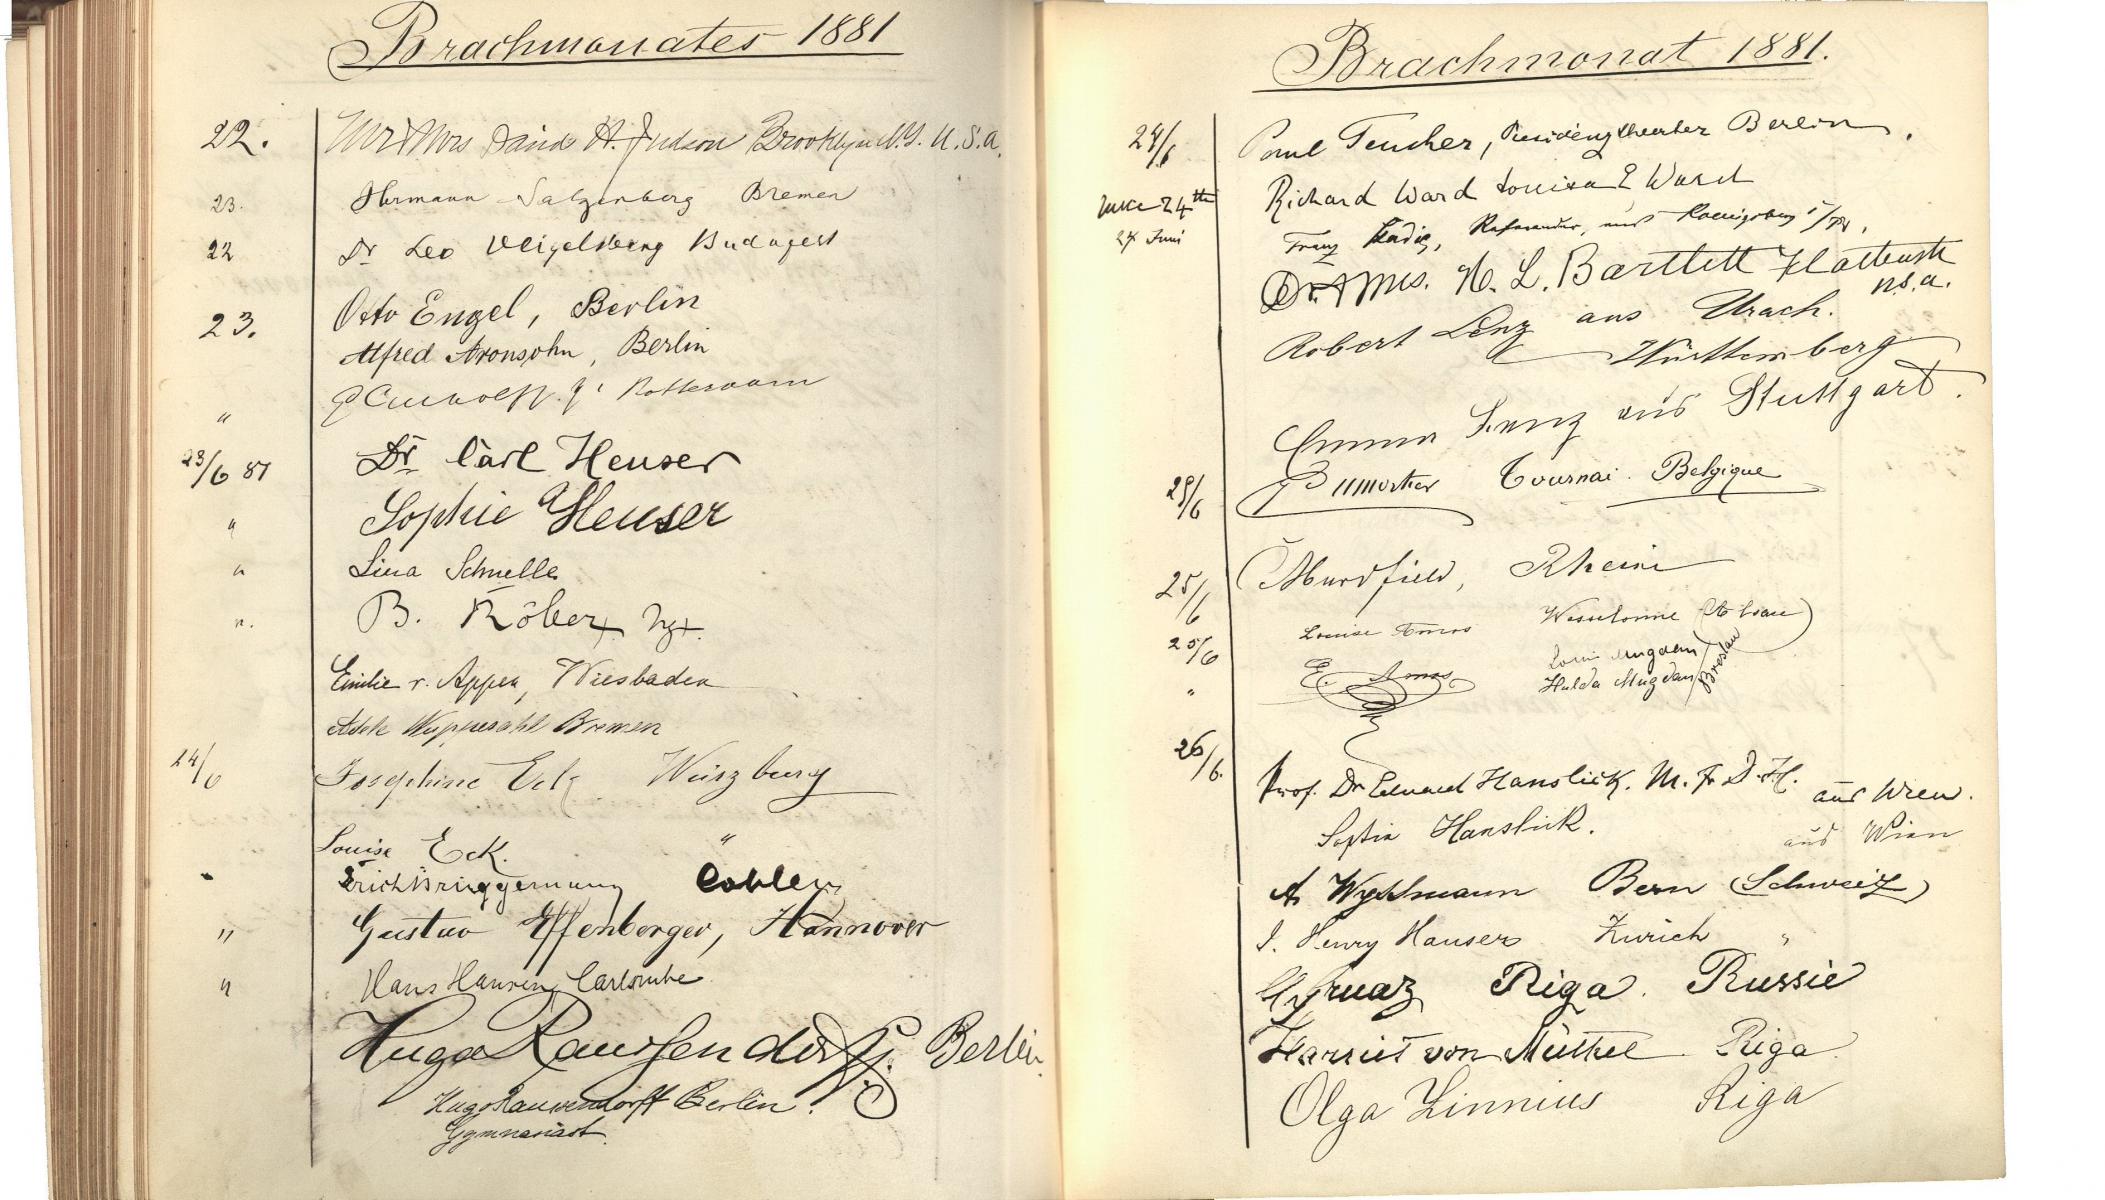 Brachmonates 1881
22. Mr & Mrs David H. Judson Brooklyn N.Y. U.S.A.
23. Hermann Salzenberg Bremen
22 Dr Leo Veigelsberg Budapest
Otto Engel, Berlin
23. Alfred Aronsohn, Berlin
" Rotterdam
23/6 81 Dr Carl Heuser
" Sophie Heuser
" Lina Schnelle
". B. Röber
Emilie v. Appen, Wiesbaden
Adele Wuppesahl Bremen
24/6 Josephine Eck Würzburg
Louise Eck. "
Erich Brüggemann
" Gustav Effenberger, Hannover
" Hans Hansen, Carlsruhe
Hugo Rauwendorff. Berlin.
Hugo Rauwendorff Berlin.
Gymnasiast.
Brachmonat 1881.
24/6 Paul Teucher, Residenztheater Berlin.
June 24th Richard Ward Louisa E Ward
24 Juni Franz Referendar, aus Koenigsberg i/Pr,
Dr. & Mrs. H. L. Bartlett Flatbush
U.S.A.
Robert Lenz aus Urach.
Württemberg
Emma Lenz aus Stuttgart.
25/6 Dumortier Tournai. Belgique
25/6 Murdfield, Rheine
25/6 Louise Amos Wesselonne (Elsau)
" E. Amos
Hulda Mugdan Breslau
26/6. Prof. Dr Eduard Hanslick. M. Fr. D. H. aus Wien.
Sophie Hanslick. aus Wien
A Wyssmann Bern (Schweiz)
J. Henry Hauser Zurich "
Riga. Russie
Harriet von Müthel Riga.
Olga Zinnius Riga